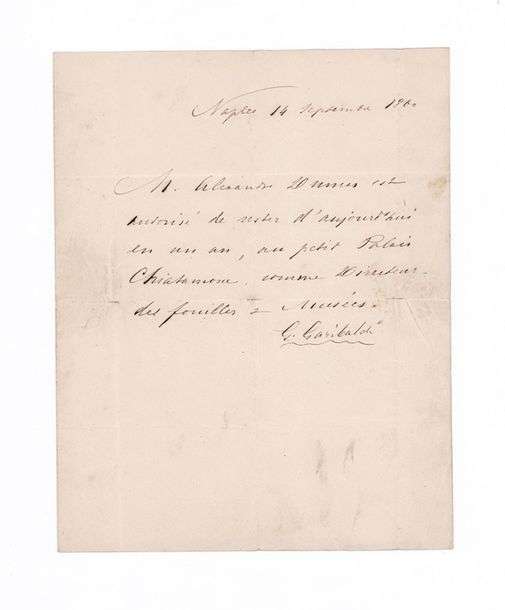 Naples 14 Septembre 1860
M. Alexandre Dumas est
autorisé de rester d'aujourd'hui
en un an, au petit Palais
Chiatamone, comme Directeur
des fouilles & Musées.
G. Garibaldi